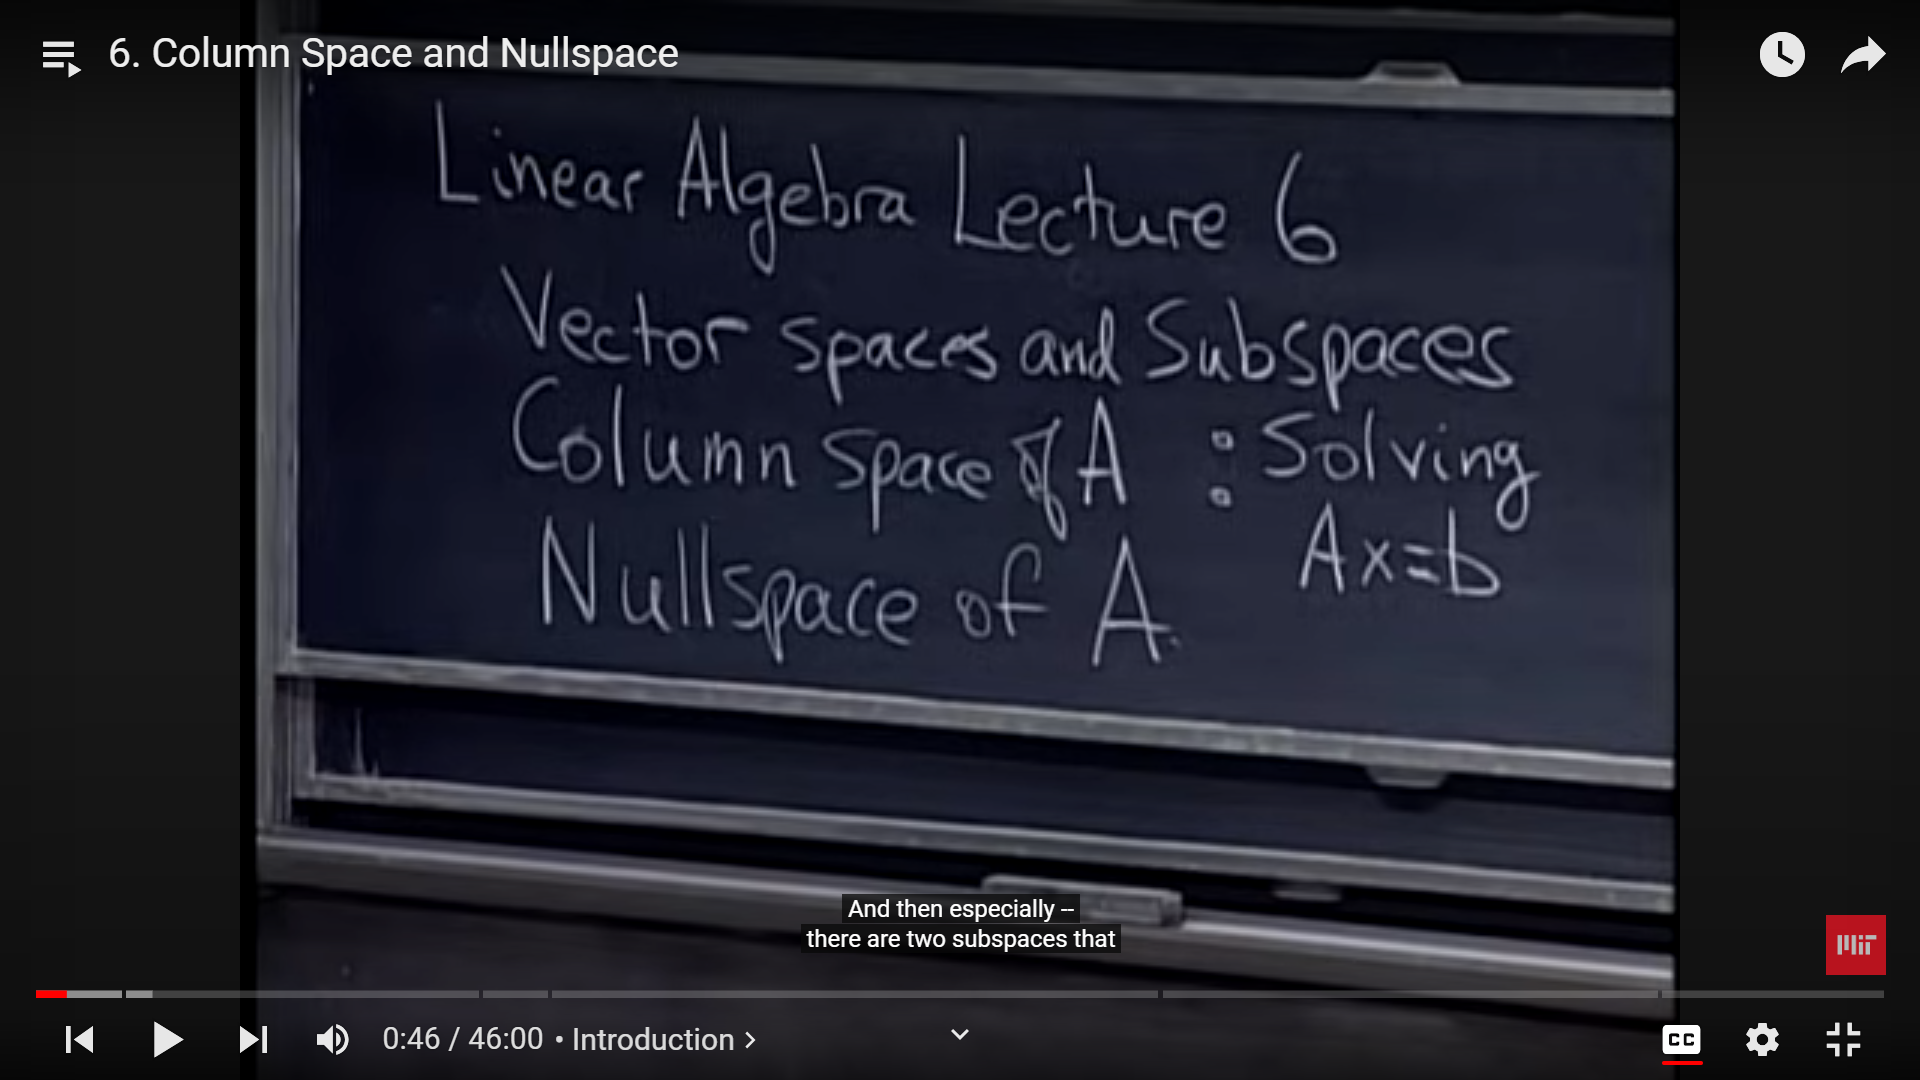 6. Column Space and Nullspace
Linear Algebra Lecture 6
Vector spaces and Subspaces
Column space of A : Solving
Ax=b
Nullspace of A.
And then especially --
there are two subspaces that
MIT
0:46 / 46:00 • Introduction >
CC